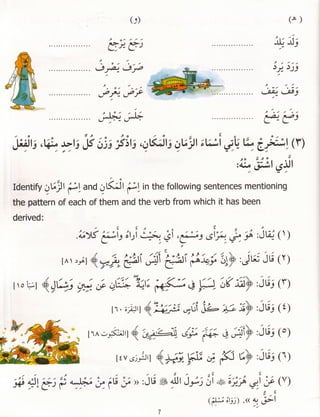 (و) (هـ)
رَجَعَ يَرْجِعُ .................. وَلَدَ يَلِدُ ..................
.................. وَزَنَ يَزِنُ ..................
.................. وَقَفَ يَقِفُ ..................
جَلَسَ يَجْلِسُ .................. وَضَعَ يَضَعُ ..................
(٣) اِسْتَخْرِجْ مما يأتي أسماء الزمان، والمكان، واذكر وزن كل واحد منها، والفعل
الذي اشتق منه:
Identify اسم الزمان and اسم المكان in the following sentences mentioning
the pattern of each of them and the verb from which it has been
derived:
(١)
(٢) قال تعالى: ﴿إن موعدهم الصبح أليس الصبح بقريب﴾ [هود ٨١]
(٣) وقال: ﴿لقد كان لسبإ في مسكنهم آية جنتان عن يمين وشمال﴾ [سبأ ١٥]
(٤) وقال: ﴿قد علم كل أناس مشربهم﴾ [البقرة ٦٠]
(٥) وقال: ﴿أليس في جهنم مثوى للكافرين﴾ [العنكبوت ٦٨]
(٦) وقال: ﴿ما لكم من ملجإ يومئذ﴾ [الشورى ٤٧]
(٧) عن أبي هريرة أن رسول الله ﷺ قال: «من قام من مجلسه ثم رجع إليه فهو
أحق به». (رواه مسلم)
7